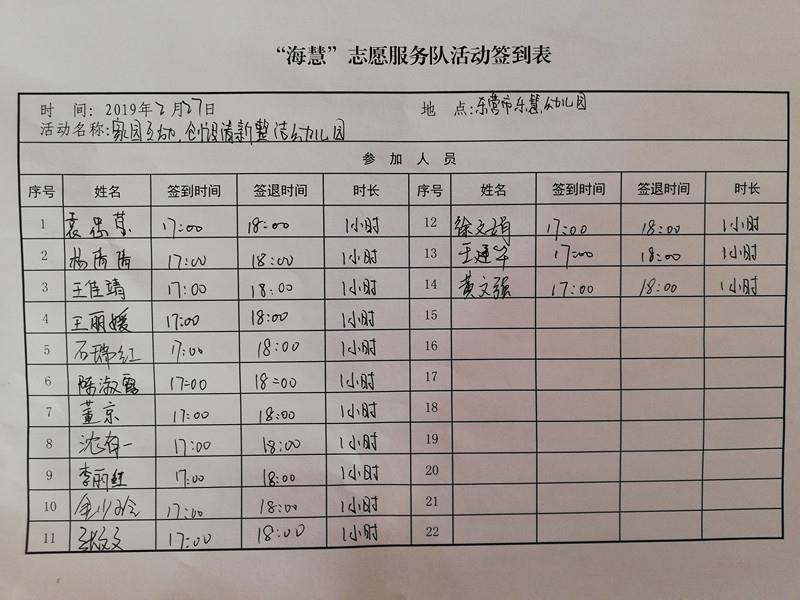 “海慧”志愿服务队活动签到表
时 间: 2019年2月27日 地 点:东营市东慧幼儿园
活动名称:家园互动,创设清新整洁幼儿园
参 加 人 员
序号 姓名 签到时间 签退时间 时长 序号 姓名 签到时间 签退时间 时长
1 17:00 18:00 1小时 12 徐文娟 17:00 18:00 1小时
2 杨倩倩 17:00 18:00 1小时 13 王建华 17:00 18:00 1小时
3 王佳靖 17:00 18:00 1小时 14 黄文强 17:00 18:00 1小时
4 王丽媛 17:00 18:00 1小时 15
5 石瑞红 17:00 18:00 1小时 16
6 陈淑霞 17:00 18:00 1小时 17
7 董京 17:00 18:00 1小时 18
8 沈存一 17:00 18:00 1小时 19
9 李丽红 17:00 18:00 1小时 20
10 17:00 18:00 1小时 21
11 张文文 17:00 18:00 1小时 22